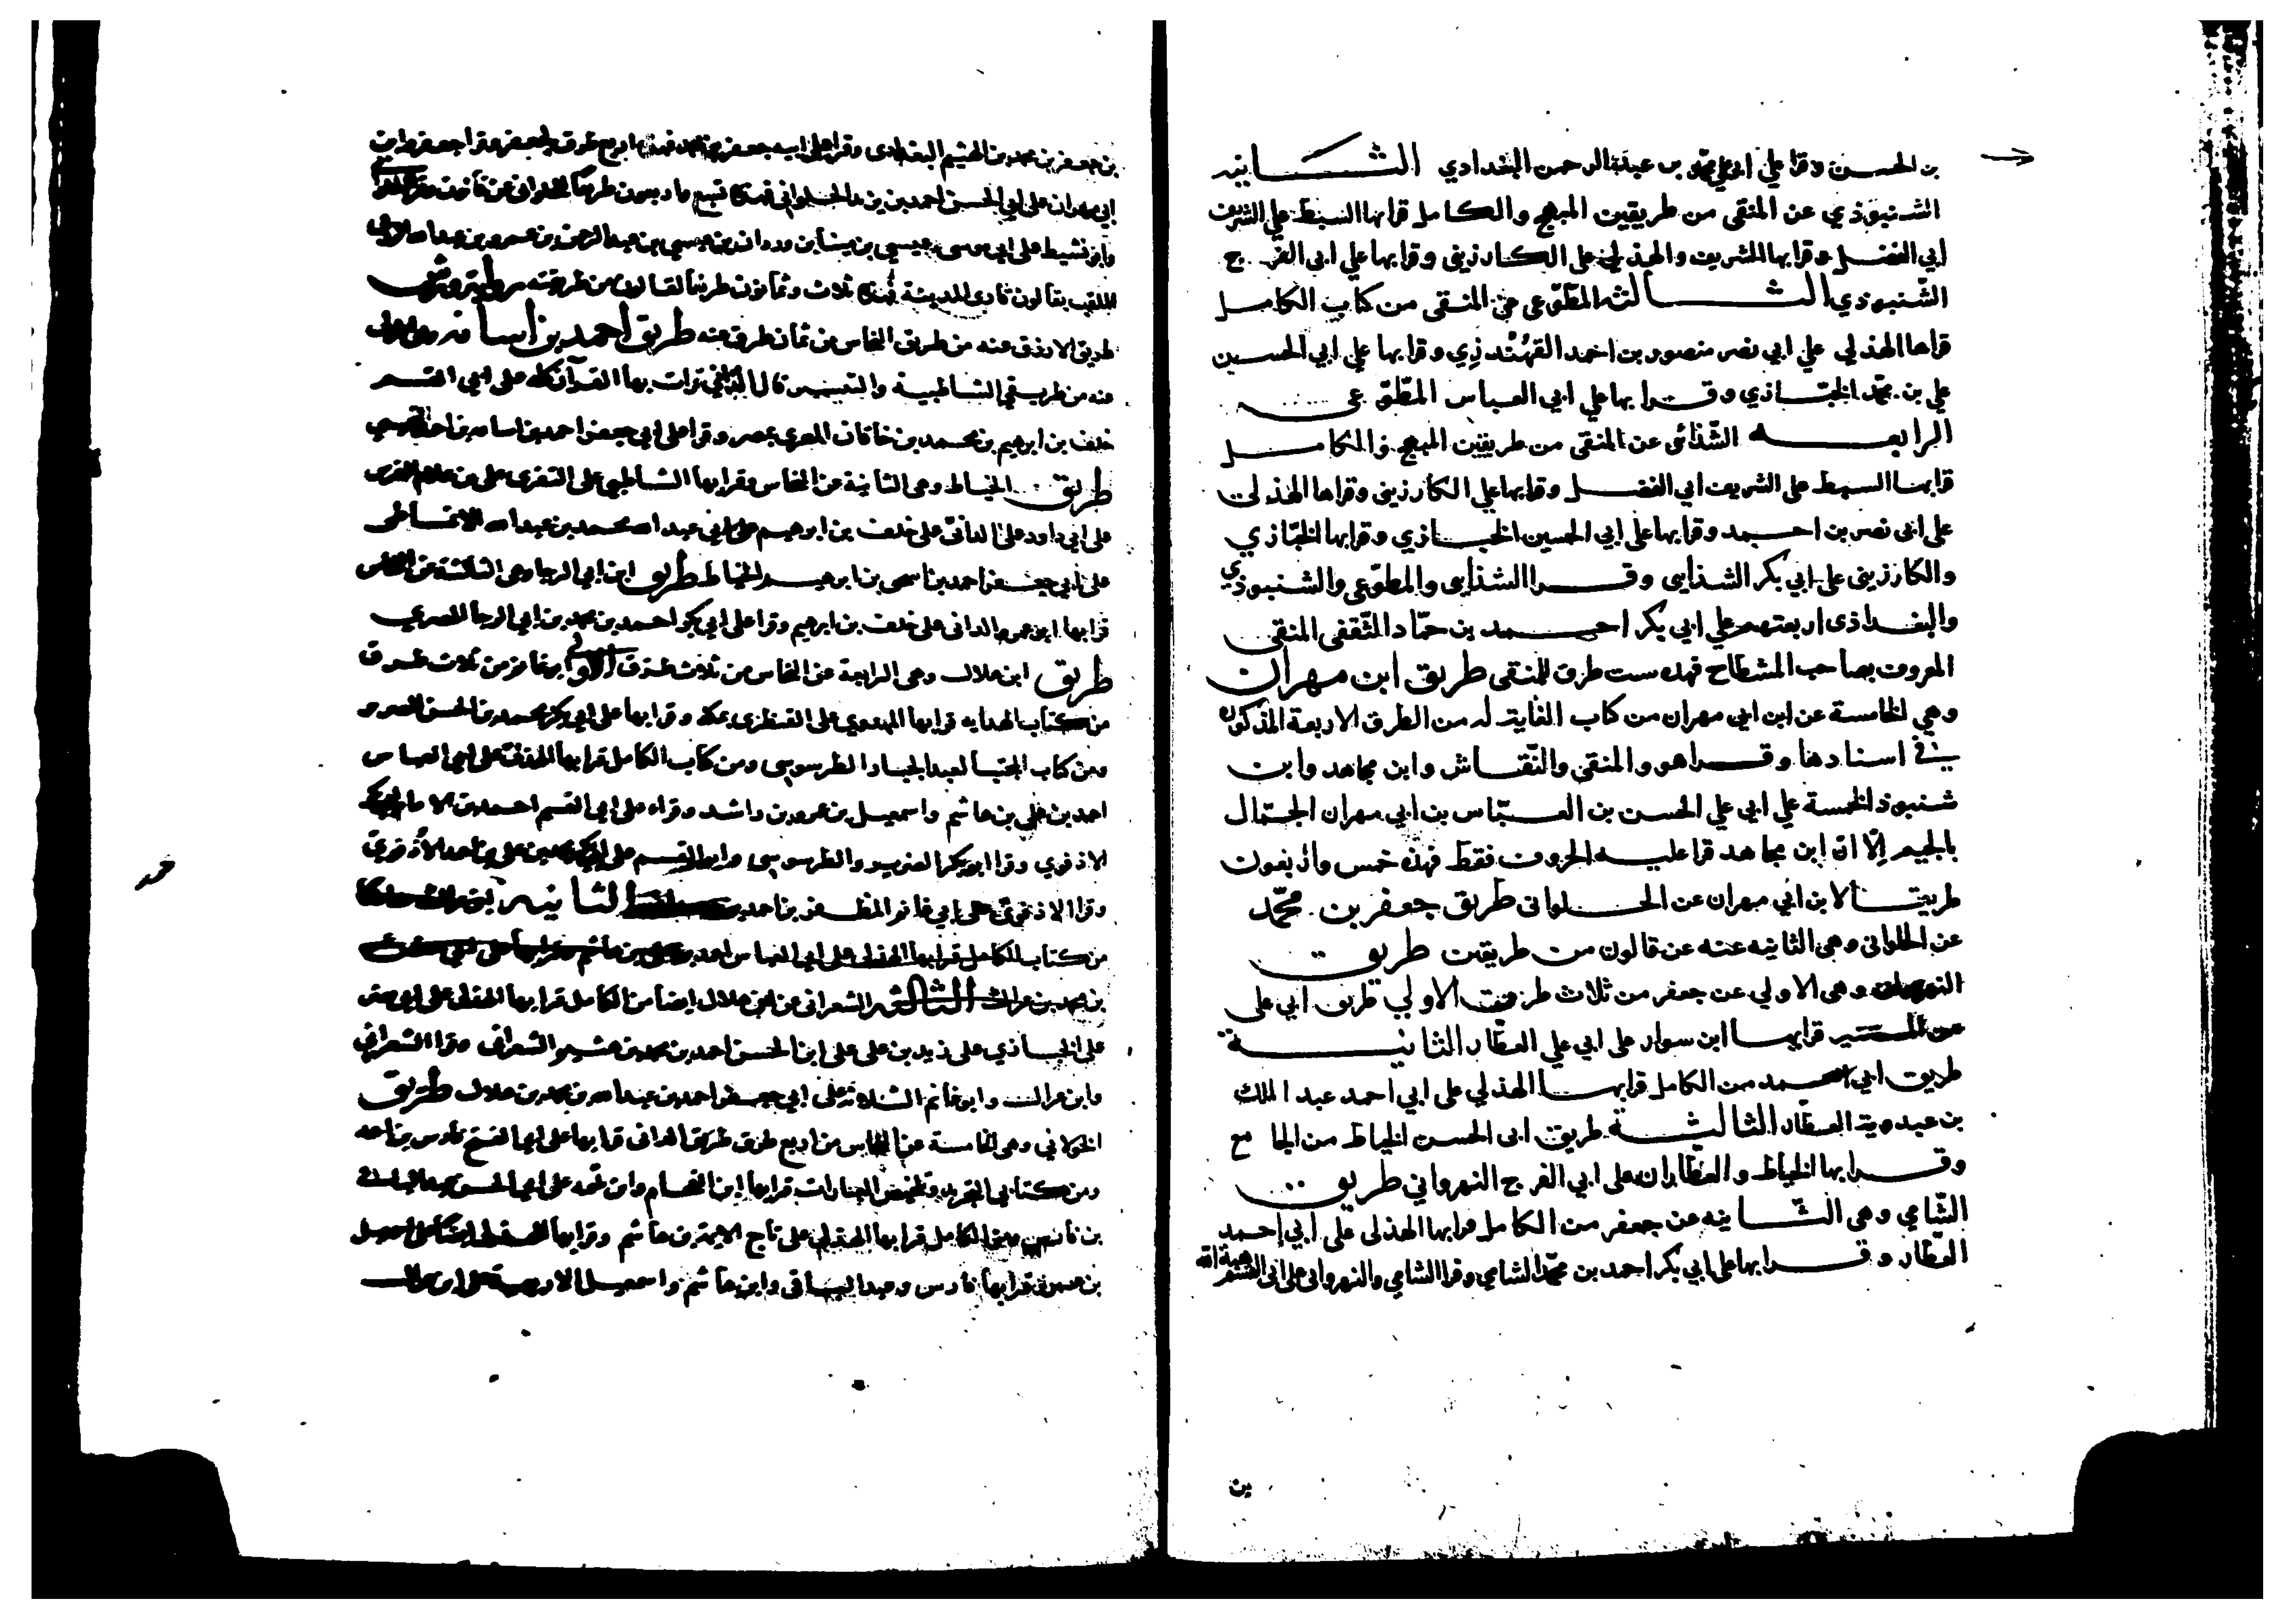 بن الحسين وقرا علي ابي علي محمد بن عبد الرحمن البغدادي الثانيه
الشنبوذي عن المنقى من طريقين المبهج والكامل قرا بها السبط علي الشريف
ابي الفضل وقرا بها الشريف والهذلي على الكارزيني وقرا بها علي ابي الفرج
الشنبوذي الثالثه المطوعي عن المنقى من كتاب الكامل
قراها الهذلي علي ابي نصر منصور بن احمد القهندزي وقرا بها علي ابي الحسين
علي بن محمد الخبازي وقرا بها علي ابي العباس المطوعي
الرابعه الشذائي عن المنقى من طريقين المبهج والكامل
قرا بها السبط على الشريف ابي الفضل وقرا بها علي الكارزيني وقراها الهذلي
على ابي نصر بن احمد وقرا بها على ابي الحسين الخبازي وقرا بها الخبازي
والكارزيني على ابي بكر الشذايي وقرا الشذايي والمطوعي والشنبوذي
والبغدادي اربعتهم علي ابي بكر احمد بن حماد الثقفي المنقى
المعروف بصاحب المشطاح فهذه ست طرق للمنقى طريق ابن مهران
وهي الخامسة عن ابن ابي مهران من كتاب الغاية له من الطرق الاربعة المذكورة
في اسنادها وقرا هو والمنقى والنقاش وابن مجاهد وابن
شنبوذ الخمسة علي ابي علي الحسن بن العباس بن ابي مهران الجمال
بالجيم الا ان ابن مجاهد قرا عليه الحروف فقط فهذه خمس واربعون
طريقا لابن ابي مهران عن الحلواني طريق جعفر بن محمد
عن الحلواني وهي الثانيه عنه عن قالون من طريقين طريق
النهرواني وهي الاولي عن جعفر من ثلاث طرق الاولي طريق ابي علي
عن المستنير قرا بها ابن سوار على ابي علي العطار الثانية
طريق ابي احمد من الكامل قرا بها الهذلي على ابي احمد عبد الملك
بن عبدوية العطار الثالثة طريق ابي الحسن الخياط من الجامع
وقرا بها الخياط والعطاران على ابي الفرج النهرواني طريق
الشامي وهي الثانيه عن جعفر من الكامل قرا بها الهذلي على ابي احمد
العطار وقرا بها على ابي بكر احمد بن محمد الشامي وقرا الشامي والنهرواني على ابي القسم هبة الله
بن
بن جعفر بن محمد بن الهيثم البغدادي وقرا على ابيه جعفر بن محمد فهذه اربع طرق لجعفر وقرا جعفر وابن
ابي مهران على ابي الحسن احمد بن يزيد الحلواني فهذه تسع واربعون طريقا للحلواني عن قالون وقرا الحلواني
وابو نشيط على ابي موسى عيسى بن مينا بن وردان بن عيسى بن عبد الرحمن بن عمرو بن عبد الله الزرقي
الملقب بقالون قاري المدينة فهذه ثلاث وثمانون طريقا لقالون من طريقيه
طريق الازرق عنه من طريق النحاس من ثمان طرق عنه طريق احمد بن اسامه
عنه من طريقي الشاطبية والتيسير قال الداني قرات بها القرآن كله على ابي القسم
خلف بن ابرهيم بن محمد بن خاقان المصري بمصر وقرا على ابي جعفر احمد بن اسامه بن احمد التجيبي
طريق الخياط وهي الثانية عن النحاس وقرا بها الشاطبي على النفزي على بن غلام الفرس
على ابي داود على الداني على خلف بن ابرهيم على ابي عبد الله محمد بن عبد الله الانماطي
على ابي جعفر احمد بن اسحق بن ابرهيم الخياط طريق ابن ابي الرجا وهي الثالثة عن النحاس
قرا بها ابو عمرو الداني على خلف بن ابرهيم وقرا على ابي بكر احمد بن محمد بن ابي الرجا المصري
طريق ابن هلال وهي الرابعة عن النحاس من ثلاث طرق الاولى ابو غانم من ثلاث طرق
من كتاب الهدايه قرا بها المهدوي على القنطري بمكه وقرا بها على ابي بكر محمد بن الحسن الضرير
ومن كتاب المجتبا لعبد الجبار الطرسوسي ومن كتاب الكامل قرا بها الهذلي على ابي العباس
احمد بن على بن هاشم واسمعيل بن عمرو بن راشد وقراء على ابي القسم احمد بن الامام ابي بكر
الاذفوي وقرا ابو بكر الضرير والطرسوسي وابو القسم على ابي بكر محمد بن علي بن احمد الاذفوي
وقرا الاذفوي على ابي غانم المظفر بن احمد بن الثانيه
من كتاب الكامل قرا بها الهذلي على ابي العباس احمد بن علي بن هاشم
بن محمد بن عراك الثالثه الشعراني عن ابن هلال ايضا من الكامل قرا بها الهذلي على ابي نصر
على الخبازي على زيد بن على على ابن الحسن احمد بن محمد بن هيثم الشعراني وقرا الشعراني
وابن عراك وابو غانم الثلاثة على ابي جعفر احمد بن عبد الله بن محمد بن هلال طريق
الخولاني وهي الخامسة عن النحاس من اربع طرق طريق الداني قرا بها على ابي الفتح فارس بن احمد
ومن كتابي التجريد وتلخيص العبارات قرا بها ابن الفحام وابن بليمه على ابي الحسن عبد الباقي
بن فارس ومن الكامل قرا بها الهذلي على تاج الايمة بن هاشم وقرا بها
بن عمرو قرا بها فارس وعبد الباقي وابن هاشم واسمعيل الاربعة على ابن عراك